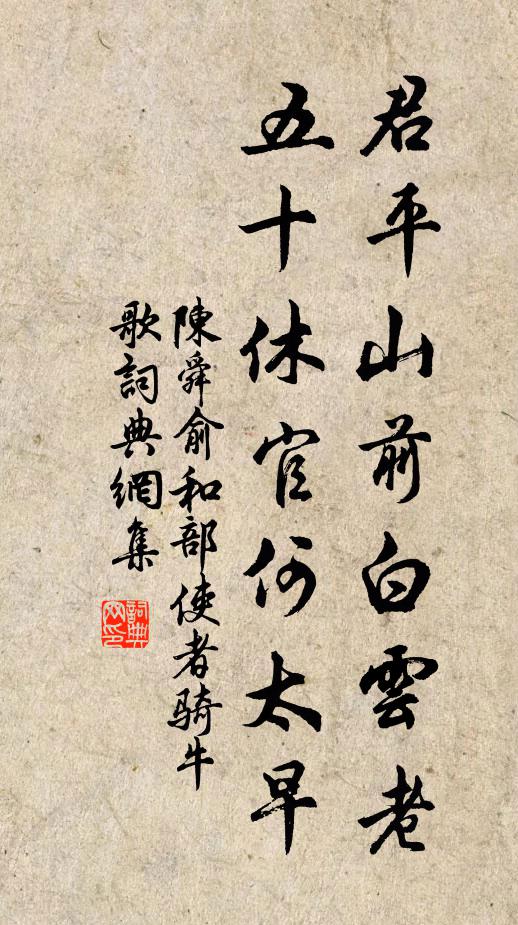 君平山前白雲老
五十休官何太早
陳舜俞和部使者騎牛
歌詞典網集
詞典
网印